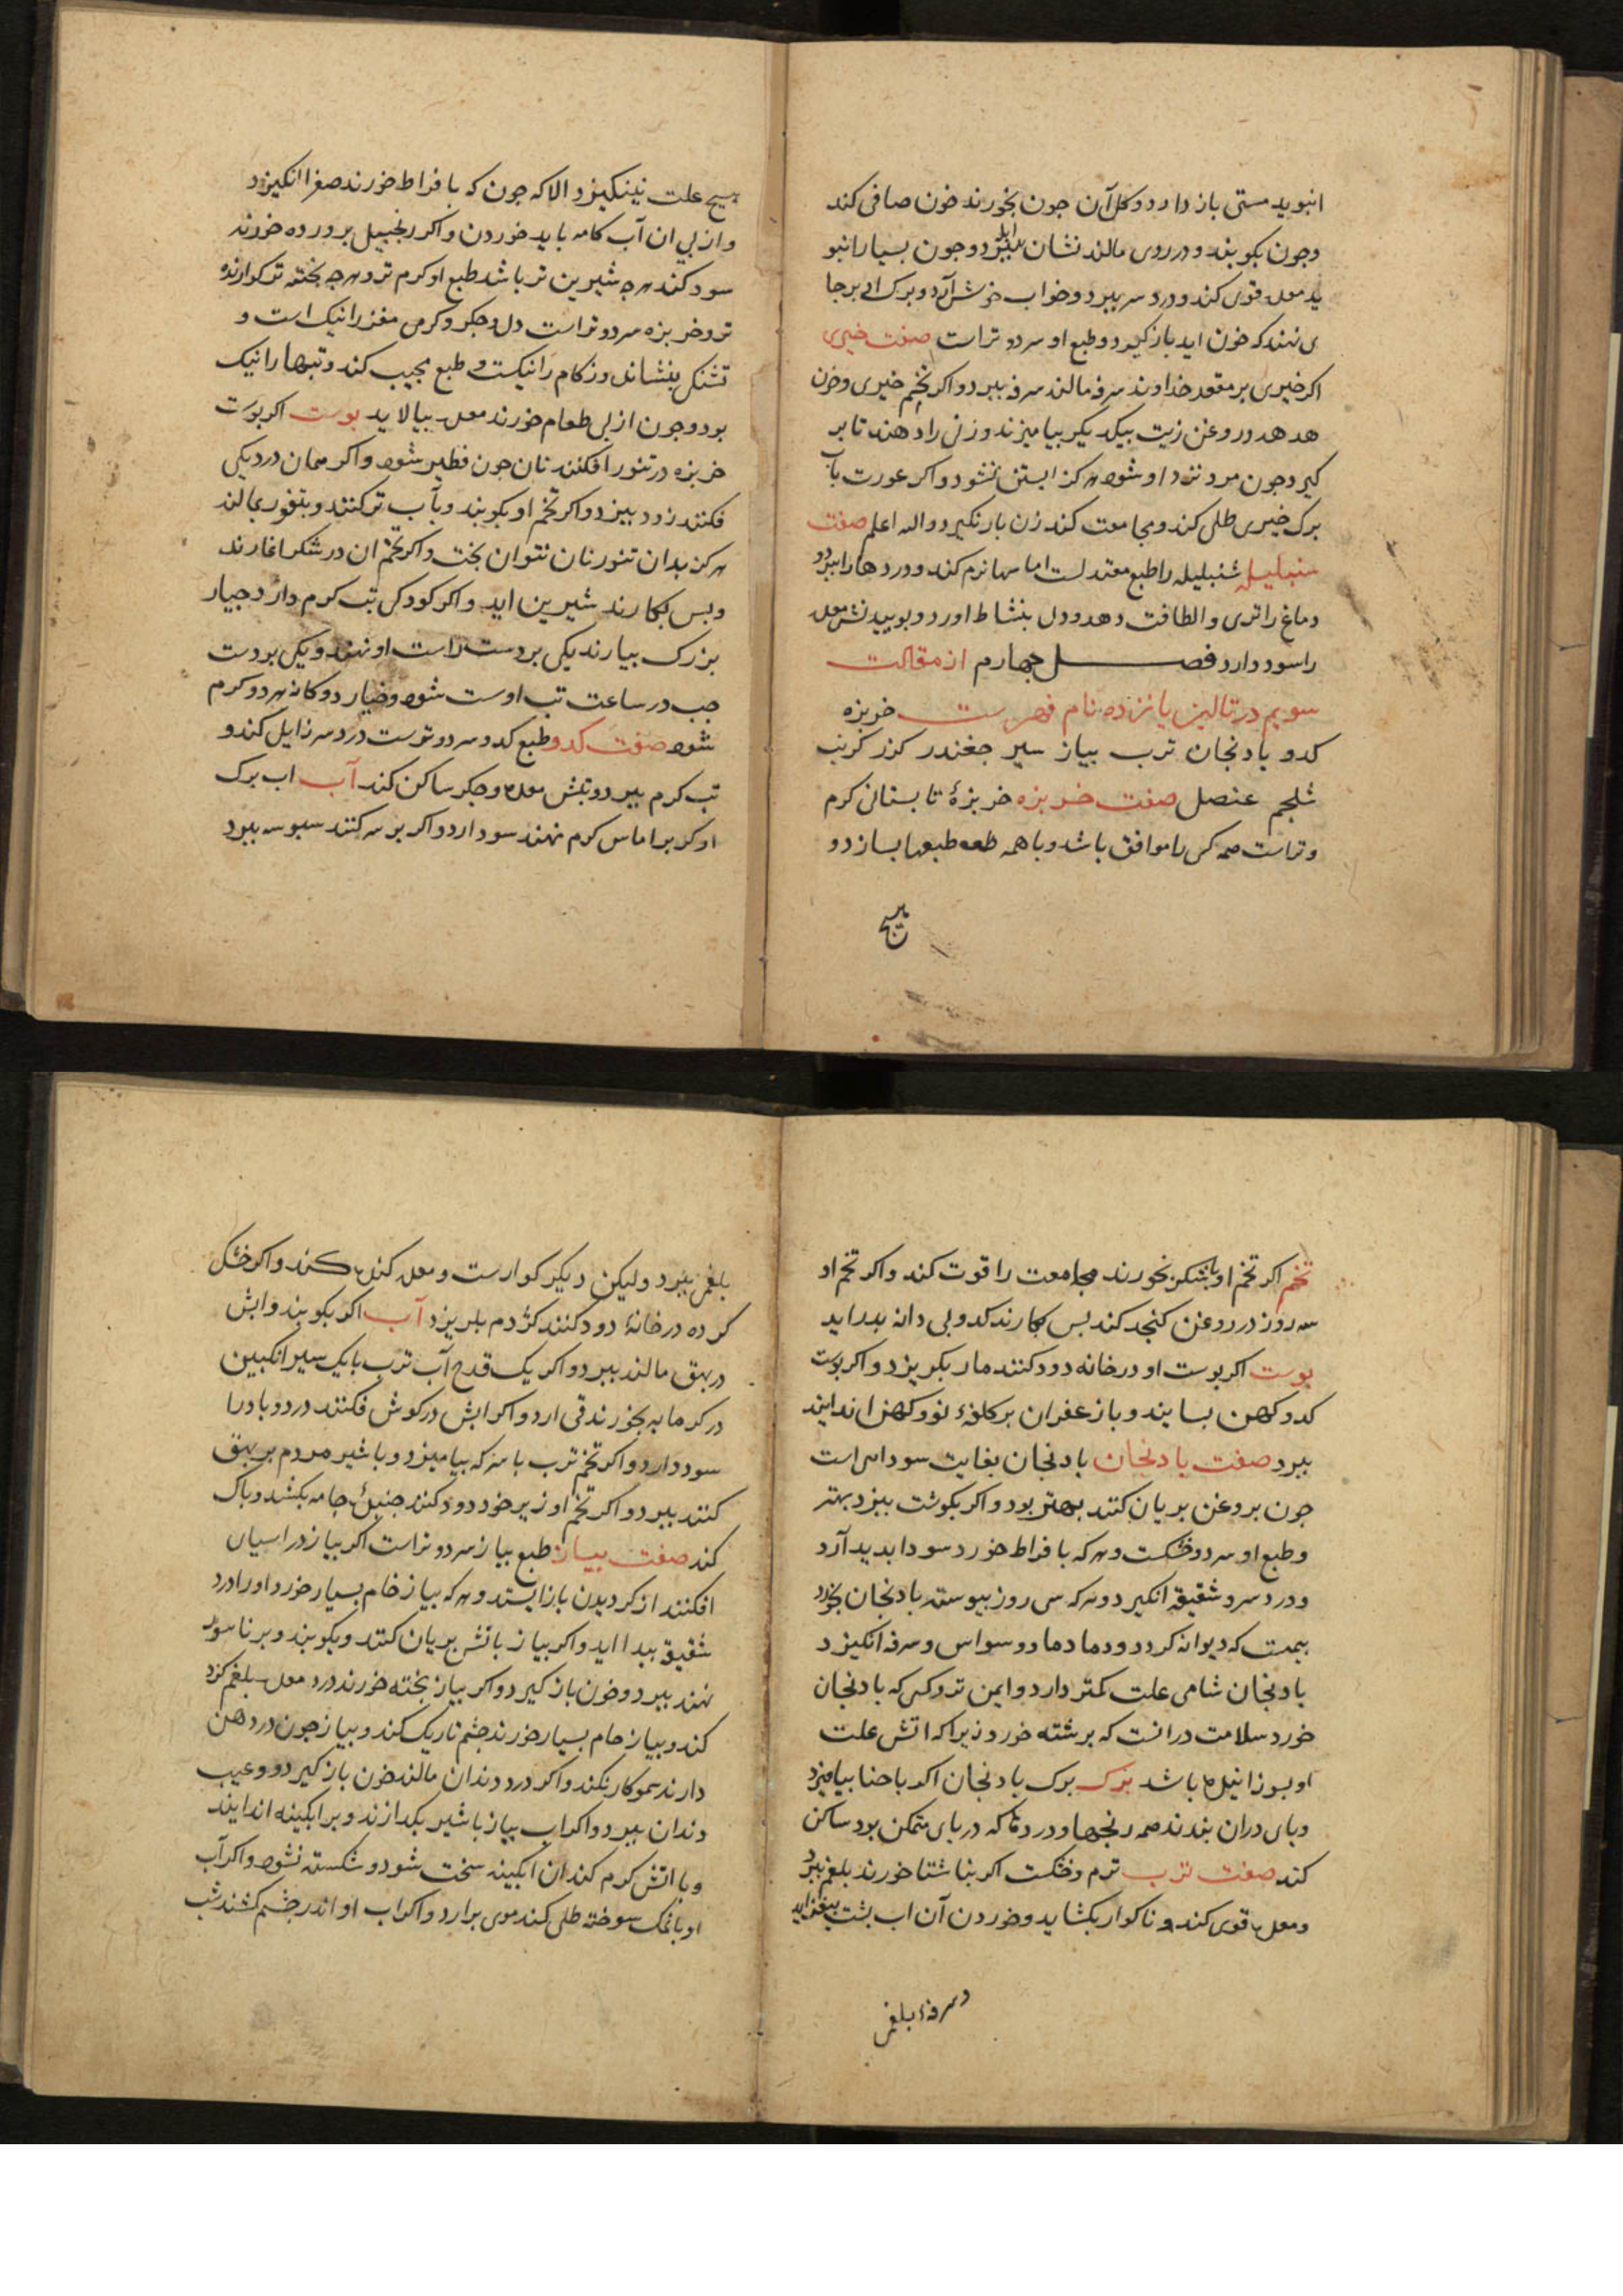 انبوید مستی باز دارد و کل آن جون بخورند خون صافی کند
وجون بکوبند و در روی مالند نشان ابله ببرد و جون بسیار انبو
ید معده قوی کند و درد سر ببرد و خواب خوش آرد و برک او بر جا
ی نهند که خون اید باز کیرد و طبع او سرد و تر است صفت خیری
اکر خیری بر مقعد خداوند سرفه مالند سرفه ببرد و اکر تخم خیری و خون
هدهد و روغن زیت بیکدیکر بیامیزند و زنی را دهند تا بر
کیرد جون مرد نزد او شود هرکز ابستن نشود و اکر عورت بآب
برک خیری طلی کند و مجامعت کند زن بار نکیرد والله اعلم صفت
شنبلیله شنبلیله را طبع معتدلست اماسها نرم کند و دردها را ببرد و
دماغ را تری و الطافت دهد و دل بنشاط اورد و بوییدنش معده
را سود دارد فصل جهارم از مقالت
سویم در تالیز یا نزده نام فهرست خربزه
کدو بادنجان ترب بیاز سیر جغندر کزر کرنب
شلجم عنصل صفت خربزه خربزۀ تابستانی کرم
و تر است همه کس را موافق باشد و با همه طبعها بسازد و
هیچ
هیج علت نینکیزد الا که جون که بافراط خورند صفرا انکیزد
و از بی ان آب کامه باید خوردن و اکر زنجبیل برورده خورند
سود کند هرجه شیرین تر باشد طبع او کرم تر و هرجه بخته تر کوارنده
تر و خربزه سرد و تر است دل و جکر و کرمی مغز را نیک است و
تشنکی بنشاند و زکام را نیکست و طبع مجیب کند و تبها را نیک
بود و جون از بی طعام خورند معده بیالاید بوست اکر بوست
خربزه در تنور افکنند نان جون فطیر شود و اکر همان در دیکی
فکنند زود ببزد و اکر تخم او بکوبند و بآب تر کنند و بتنور بمالند
هرکز بدان تنور نان نتوان بخت و اکر تخم ان در شکر اغارند
و بس بکارند شیرین اید و اکر کودکی تب کرم دارد خیار
بزرک بیارند یکی بر دست راست او نهند و یکی بر دست
جب در ساعت تب او ست شود و خیار دوکانه هر دو کرم
شود صفت کدو طبع کدو سرد و ترست درد سر زایل کند و
تب کرم ببرد و تبش معده و جکر ساکن کند آب اب برک
او کر بر اماس کرم نهند سود دارد و اکر بر سر کنند سبوسه ببرد
تخم اکر تخم او با شکر بخورند مجامعت را قوت کند و اکر تخم او
سه روز در روغن کنجد کنند بس بکارند کدو بی دانه بدر اید
بوست اکر بوست او در خانه دود کنند مار بکریزد و اکر بوست
کدو کهن بسایند و با زعفران بر کلفۀ نو و کهن اندایند
ببرد صفت بادنجان بادنجان بغایت سوداس است
جون بروغن بریان کنند بهتر بود و اکر بکوشت ببزد بهتر
و طبع او سرد و خشکست و هر که بافراط خورد سودا بدید آرد
و درد سر و شقیقه انکیرد و هر که سی روز بیوسته بادنجان بخورد
بیمست که دیوانه کردد و دمادما دو سواس و سرفه انکیزد
بادنجان شامی علت کمتر دارد و ایمن تر و کسی که بادنجان
خورد سلامت در انست که برشته خورد زیرا که اتش علت
او بسوزانیده باشد برک برک بادنجان اکر با حنا بیامیزد
و بای دران بندند همه رنجها و دردها که در بای متمکن بود ساکن
کند صفت ترب کرم و خشکست اکر بناشتا خورند بلغم ببرد
و معده قوی کند و ناکوار بکشاید و خوردن آن اب بشت بیفزاید
و سرفۀ بلغمی
بلغمی ببرد ولیکن دیر کوارست و معده کند کند و اکر خشک
کرده در خانۀ دود کنند کژدم بلریزد آب اکر بکوبند و ابش
در بهق مالند ببرد و اکر یک قدح آب ترب با یک سیر انکبین
در کرمابه بخورند قی ارد و اکر ابش در کوش فکنند درد و باد را
سود دارد و اکر تخم ترب با سرکه بیامیزد و با شیر مردم بر بهق
کنند ببرد و اکر تخم او زیر خود دود کنند جنبدۀ جامه بکشد و باک
کند صفت بیاز طبع بیاز سرد و تر است اکر بیاز در اسیاب
افکنند از کردیدن باز ایستد و هر که بیاز خام بسیار خورد او را درد
شقیقه بیدا اید و اکر بیاز باتش بریان کنند و بکوبند و بر ناسور
نهند ببرد و خون باز کیرد و اکر بیاز بخته خورند درد معده بلغم کرد
کند و بیاز خام بسیار خورند جشم تاریک کند و بیاز جون در دهن
دارند سمو کار نکند و اکر در دندان مالند خون باز کیرد و عیب
دندان ببرد و اکر اب بیاز با شیر بکدازند و بر ابکینه اندایند
و با اتش کرم کند ان ابکینه سخت شود و شکسته نشود و اکر آب
او با نمک سوخته طلی کند موی برارد و اکر اب او اندر جشم کشند شب